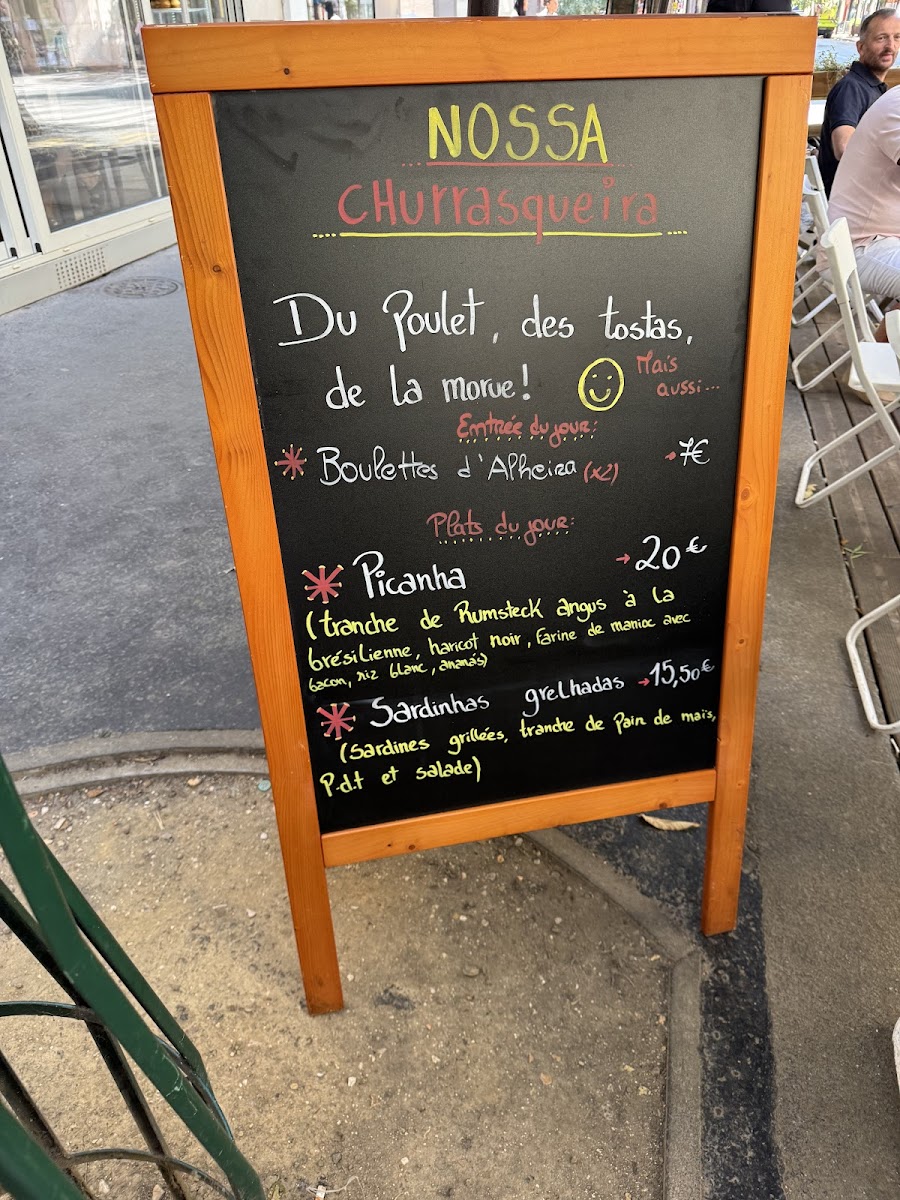 NOSSA
CHurrasqueira
Du Poulet, des tostas,
de la morue!
Mais
aussi...
Entrée du jour:
Boulettes d'Alheira (x2) → 7€
Plats du jour:
Picanha → 20€
(tranche de Rumsteck angus à la
brésilienne, haricot noir, farine de manioc avec
bacon, riz blanc, ananás)
Sardinhas grelhadas → 15,50€
(Sardines grillées, tranche de Pain de maïs,
P.d.t et salade)